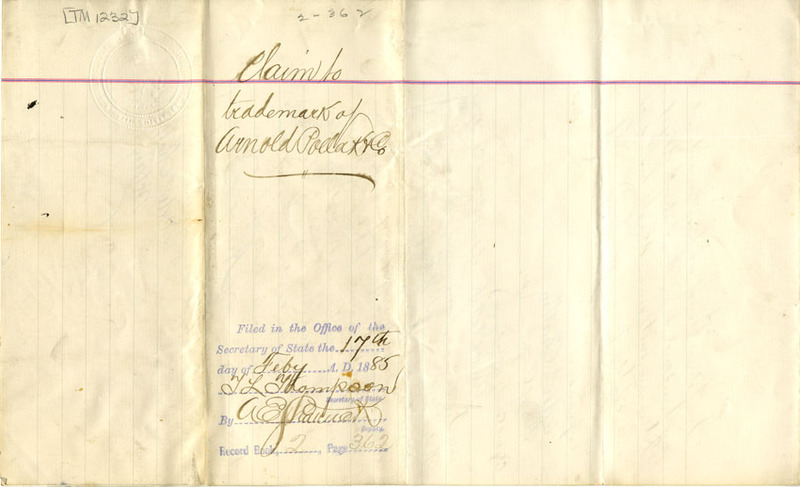 [TM 1232]
2-362
Claim to
trademark of
Arnold Pollak & Co
Filed in the Office of the
Secretary of State the 17th
day of Feby A. D. 1885
T L Thompson
Secretary of State
By A E
Deputy
Record Book 2, Page 362